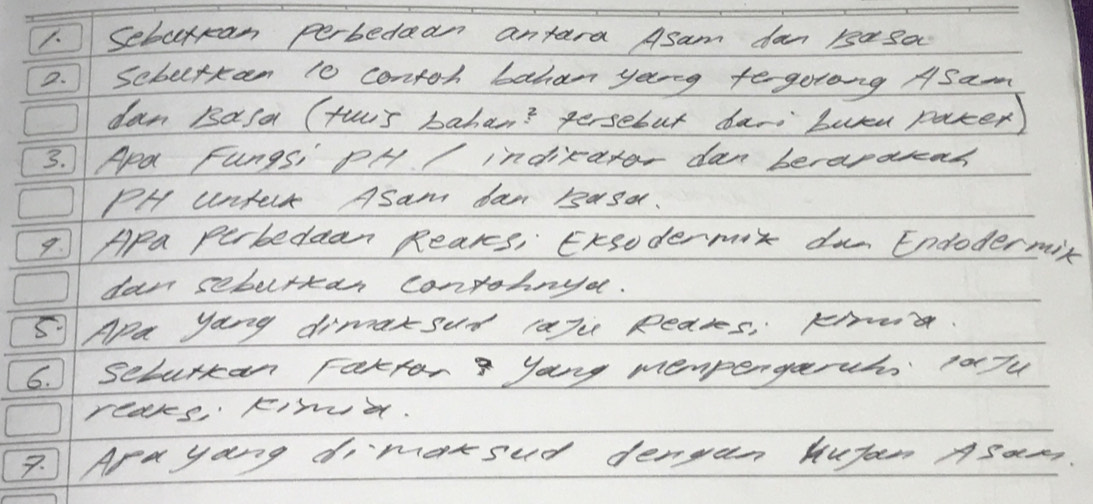 1. Sebutkan perbedaan antara Asam dan Basa
2. Sebutkan 10 contoh bahan yang tergolong Asam
dan Basa (tulis bahan² tersebut dari buku paket)
3. Apa Fungsi PH / indikator dan berapakah
PH untuk Asam dan Basa.
4. Apa perbedaan Reaksi Eksodermik dan Endodermik
dan sebutkan contohnya.
5. Apa yang dimaksud laju Reaksi Kimia.
6. Sebutkan Faktor² yang mempengaruhi laju
reaksi Kimia.
7. Apa yang dimaksud dengan Hujan Asam.